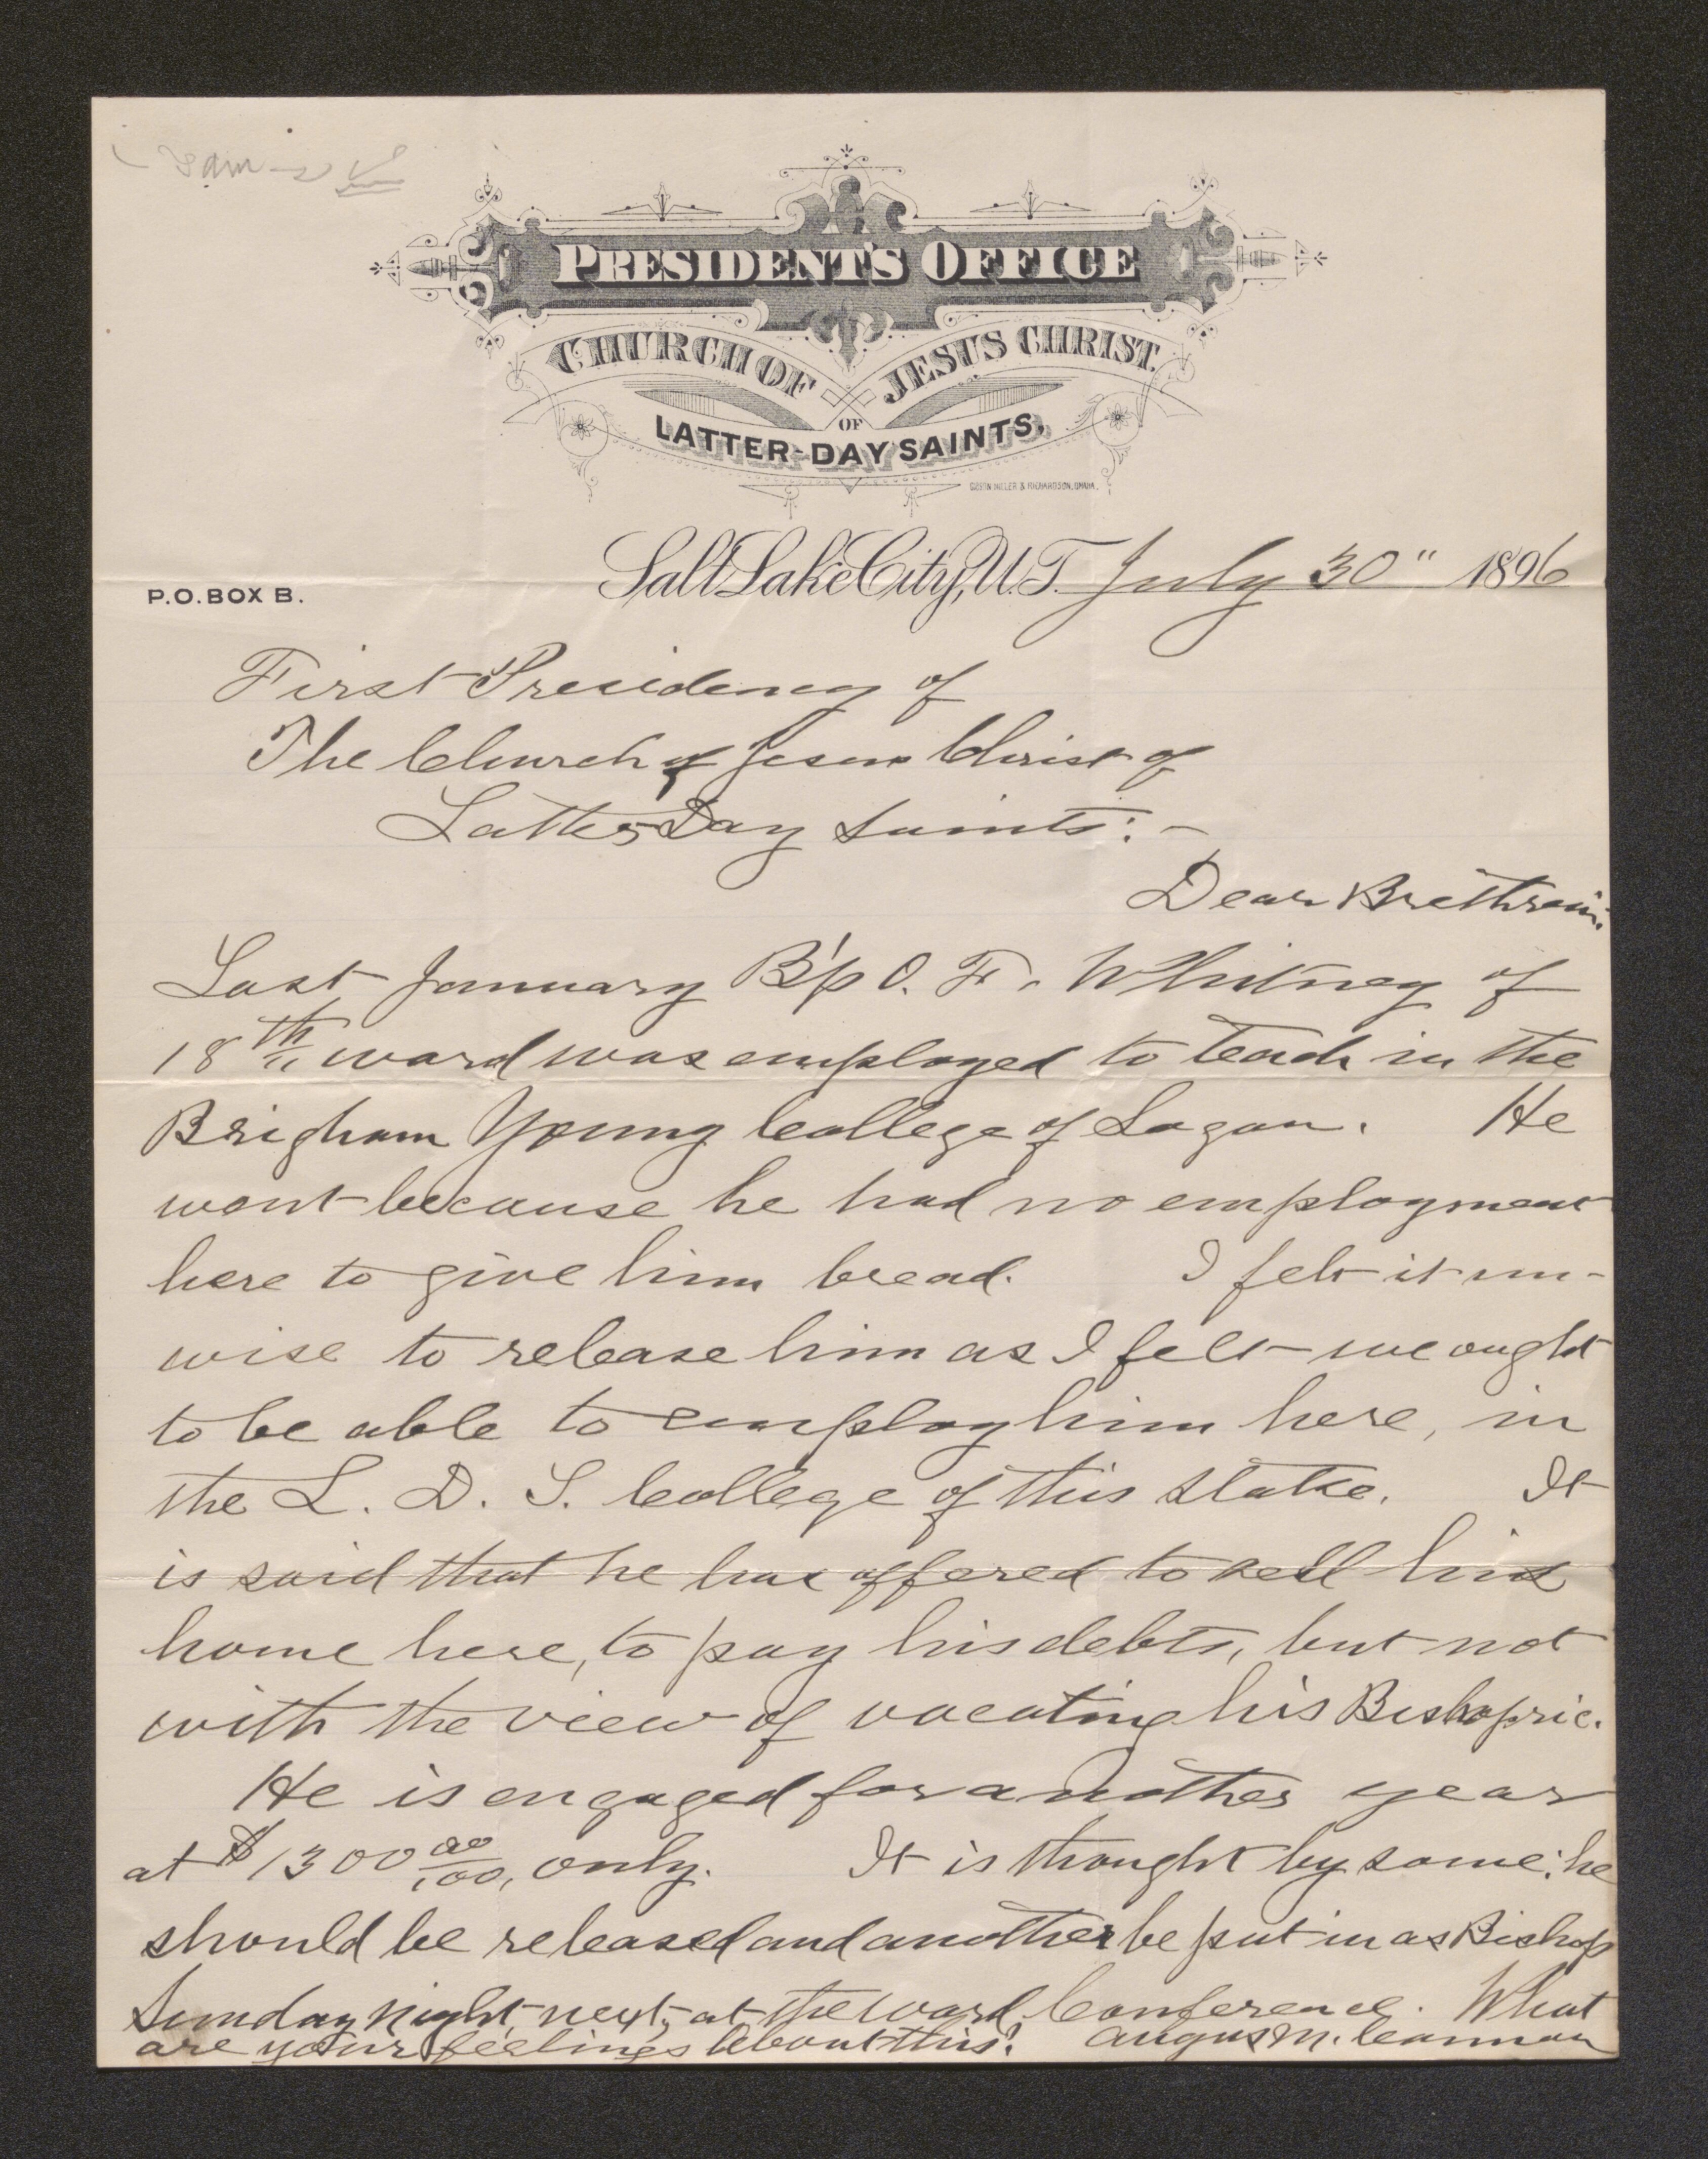 PRESIDENT'S OFFICE
CHURCH OF JESUS CHRIST.
OF
LATTER-DAY SAINTS,
Salt Lake City, U.T. July 30" 1896
P.O. BOX B.
First Presidency of
The Church of Jesus Christ of
Latter Day Saints:-
Dear Brethren:
Last January B'p O. F. Whitney of
18th ward was employed to teach in the
Brigham Young College of Logan. He
went because he had no employment
here to give him bread. I felt it un-
wise to release him as I felt we ought
to be able to employ him here, in
the L. D. S. College of this Stake. It
is said that he has offered to sell his
home here, to pay his debts, but not
with the view of vacating his Bishopric.
He is engaged for another year
at $1300 00/100, only. It is thought by some: he
should be released and another be put in as Bishop
Sunday night next, at the ward Conference. What
are your feelings about this? Angus M. Cannon